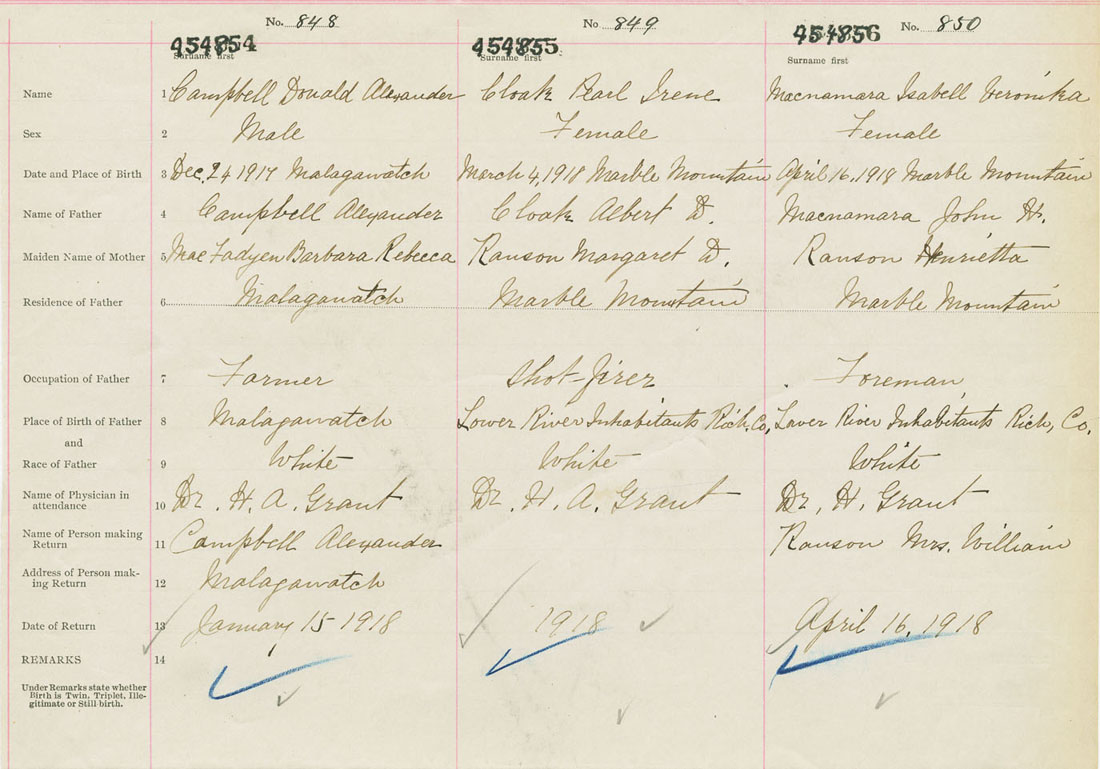 No. 848 No 849 No. 850
454854 454855 454856
Surname first Surname first Surname first
Name 1 Campbell Donald Alexander Cloak Pearl Irene Macnamara Isabell Veronika
Sex 2 Male Female Female
Date and Place of Birth 3 Dec. 24 1917 Malagawatch March 4, 1918 Marble Mountain April 16, 1918 Marble Mountain
Name of Father 4 Campbell Alexander Cloak Albert D. Macnamara John H.
Maiden Name of Mother 5 MacFadyen Barbara Rebecca Ranson Margaret D. Ranson Henrietta
Residence of Father 6 Malagawatch Marble Mountain Marble Mountain
Occupation of Father 7 Farmer Shot-firer Foreman
Place of Birth of Father 8 Malagawatch Lower River Inhabitants Rich. Co. Lower River Inhabitants Rich, Co.
and
Race of Father 9 White White White
Name of Physician in
attendance 10 Dr. H. A. Grant Dr. H. A. Grant Dr. H. Grant
Name of Person making
Return 11 Campbell Alexander Ranson Mrs. William
Address of Person mak-
ing Return 12 Malagawatch
Date of Return 13 January 15 1918 1918 April 16, 1918
REMARKS 14
Under Remarks state whether
Birth is Twin, Triplet, Ille-
gitimate or Still-birth.